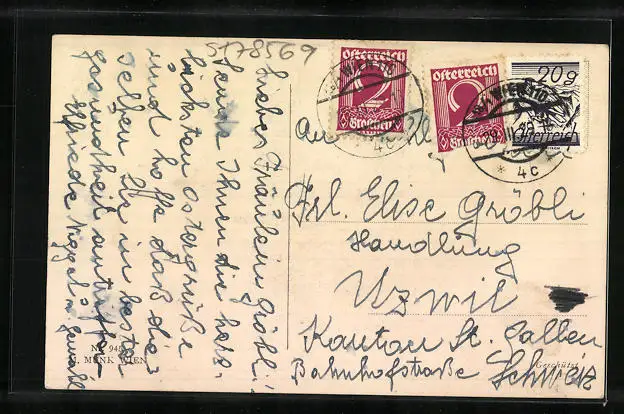 5178569
Liebes Fräulein Gröbli!
Sende Ihnen die herz-
lichsten Ostergrüße
und hoffe daß die-
selben Sie in bester
Gesundheit antreffen
Elfriede
An
Frl. Elise Gröbli
Handlung
Uzwil
Kanton St. Gallen
Bahnhofstraße Schweiz
Österreich
2
Groschen
Österreich
2
Groschen
20g
Österreich
WIEN
* 4c
M. MUNK WIEN
Geschützt